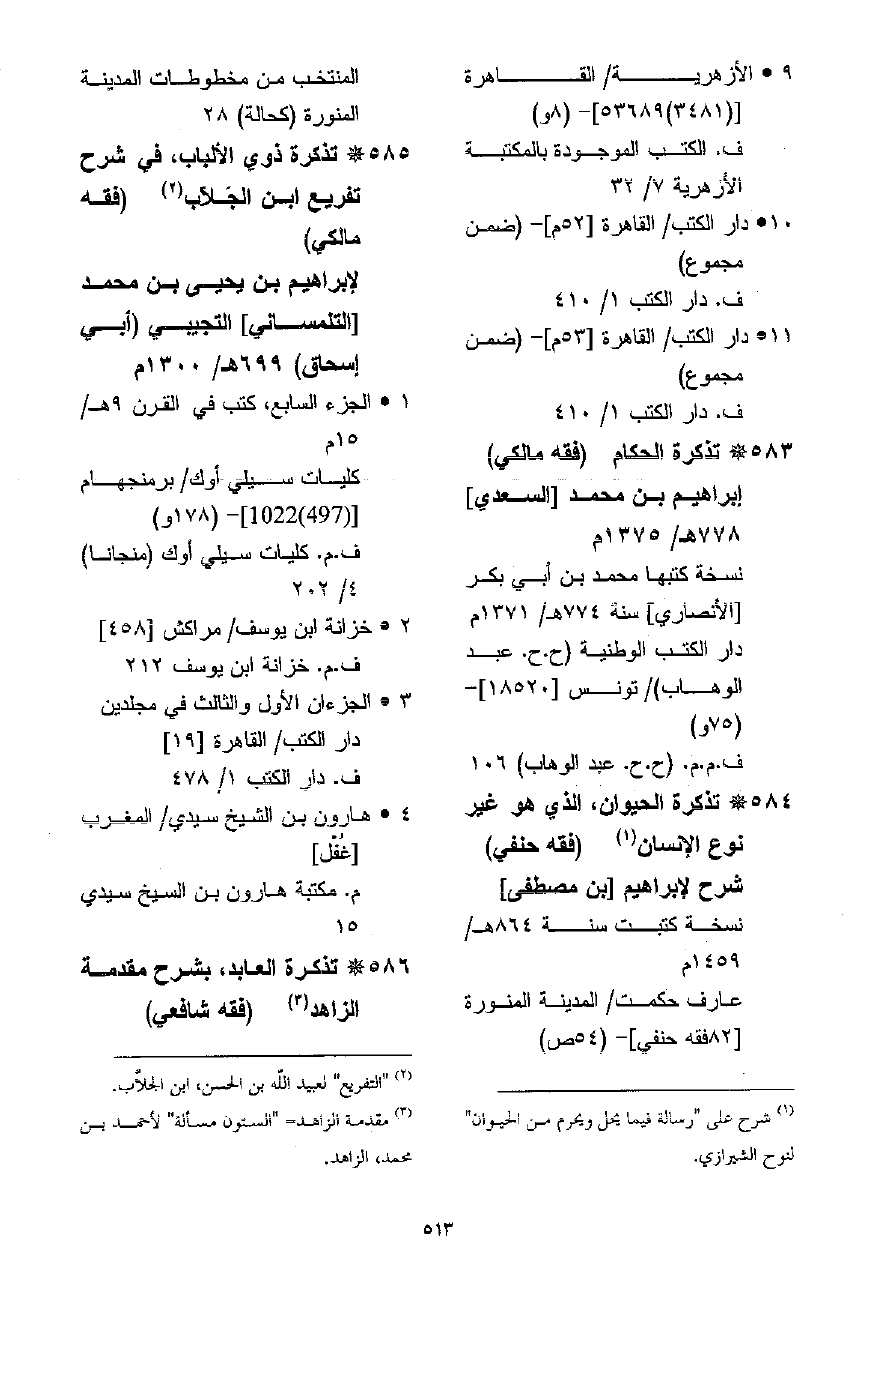 ٩ • الأزهرية/ القاهرة
[(٣٤٨١)٥٣٦٨٩]– (٨و)
ف. الكتب الموجودة بالمكتبة
الأزهرية ٧/ ٣٢
١٠• دار الكتب/ القاهرة [٥٢م]– (ضمن
مجموع)
ف. دار الكتب ١/ ٤١٠
١١• دار الكتب/ القاهرة [٥٣م]– (ضمن
مجموع)
ف. دار الكتب ١/ ٤١٠
٥٨٣* تذكرة الحكام (فقه مالكي)
إبراهيم بن محمد [السعدي]
٧٧٨هـ/ ١٣٧٥م
نسخة كتبها محمد بن أبي بكر
[الأنصاري] سنة ٧٧٤هـ/ ١٣٧١م
دار الكتب الوطنية (ح.ح. عبد
الوهاب)/ تونس [١٨٥٢٠]–
(٧٥و)
ف.م.م. (ح.ح. عبد الوهاب) ١٠٦
٥٨٤* تذكرة الحيوان، الذي هو غير
نوع الإنسان(١) (فقه حنفي)
شرح لإبراهيم [بن مصطفى]
نسخة كتبت سنة ٨٦٤هـ/
١٤٥٩م
عارف حكمت/ المدينة المنورة
[٨٢فقه حنفي]– (٥٤ص)
(١) شرح على "رسالة فيما يحل ويحرم من الحيوان"
لنوح الشيرازي.
المنتخب من مخطوطات المدينة
المنورة (كحالة) ٢٨
٥٨٥* تذكرة ذوي الألباب، في شرح
تفريع ابن الجَلاّب(٢) (فقه
مالكي)
لإبراهيم بن يحيى بن محمد
[التلمساني] التجيبي (أبي
إسحاق) ٦٩٩هـ/ ١٣٠٠م
١ • الجزء السابع، كتب في القرن ٩هـ/
١٥م
كليات سيلي أوك/ برمنجهام
[1022(497)]– (١٧٨و)
ف.م. كليات سيلي أوك (منجانا)
٤/ ٢٠٢
٢ • خزانة ابن يوسف/ مراكش [٤٥٨]
ف.م. خزانة ابن يوسف ٢١٢
٣ • الجزءان الأول والثالث في مجلدين
دار الكتب/ القاهرة [١٩]
ف. دار الكتب ١/ ٤٧٨
٤ • هارون بن الشيخ سيدي/ المغرب
[غُفْل]
م. مكتبة هارون بن السيخ سيدي
١٥
٥٨٦* تذكرة العابد، بشرح مقدمة
الزاهد(٣) (فقه شافعي)
(٢) "التفريع" لعبيد الله بن الحسن، ابن الجلاَّب.
(٣) مقدمة الزاهد= "الستون مسألة" لأحمد بن
محمد، الزاهد.
٥١٣